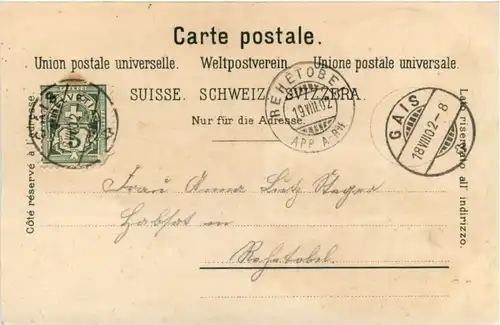 Carte postale.
Union postale universelle. Weltpostverein. Unione postale universale.
SUISSE. SCHWEIZ. SVIZZERA.
Nur für die Adresse.
Côté réservé à l'adresse.
Lato riservato all' indirizzo.
REHETOBEL
19.VIII.02
APP. A. RH.
GAIS
18.VIII.02-8
HELVETIA
5
Frau Anna Lutz Steger
Habset
in
Rehetobel.